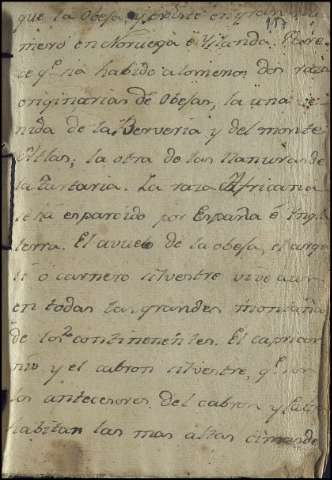 que la Obeja y existe en gran nu-
mero en Noruega é Yslanda. Pare-
ce q.e ha habido alomenos dos razas
originarias de Obejas, la una ve-
nida de la Berveria y del monte
Atlas; la otra de las llanuras de
la Tartaria. La raza Africana
se ha esparcido por España é Ingla-
terra. El avuelo de la obeja, el arga-
li ó carnero silvestre vive aun
en todas las grandes montañas
de los 2 continenentes. El capricor-
nio y el cabron silvestre, q.e son
los antecesores del cabron y
habitan las mas altas cimas de
157